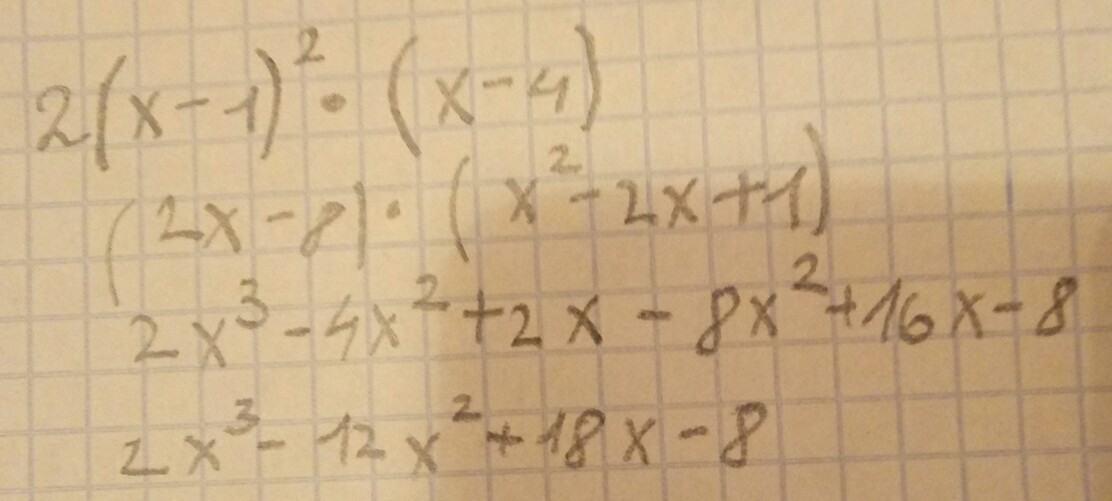 2(x-1)² · (x-4)
(2x-8) · (x²-2x+1)
2x³-4x²+2x-8x²+16x-8
2x³-12x²+18x-8